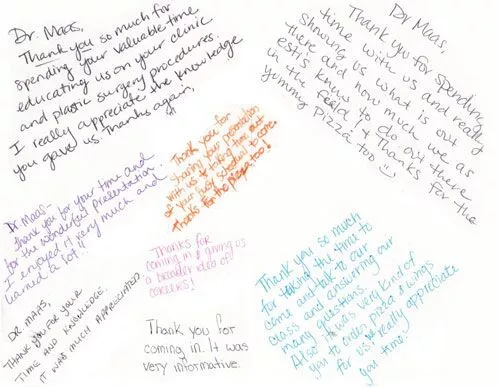 Dr. Maas,
Thank you so much for
spending your valuable time
educating us on your clinic
and plastic surgery procedures.
I really appreciate the knowledge
you gave us. Thanks again,
Dr Maas,
Thank you for spending
time with us and really
showing us what is out
there and how much we as
estis know to do out there
in the field! Thanks for the
yummy Pizza too
Thank you for
sharing your presentation
with us & taking time out
of your busy schedual to come.
Thanks for the pizza too!
Dr Maas-
Thank you for your time and
for the wonderful presentation.
I enjoyed it very much and
learned a lot!!
Thanks for
coming in & giving us
a broader idea of
careers!
Dr. Maas,
Thank you for your
time and knowledge.
It was much appreciated.
Thank you for
coming in. It was
very informative.
Thank you so much
for taking the time to
come and talk to our
class and answering our
many questions.
Also it was very kind of
you to order pizza & wings
for us. We really appreciate
you time.